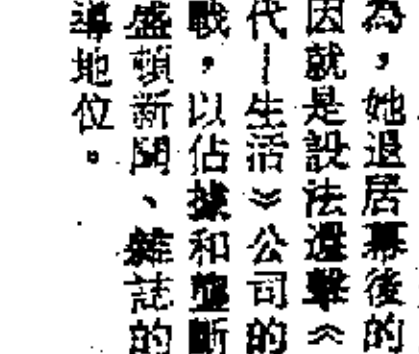 為，她退居幕後的
因就是設法還擊《
代—生活》公司的
戰，以佔據和壟斷
盛頓新聞、雜誌的
導地位。